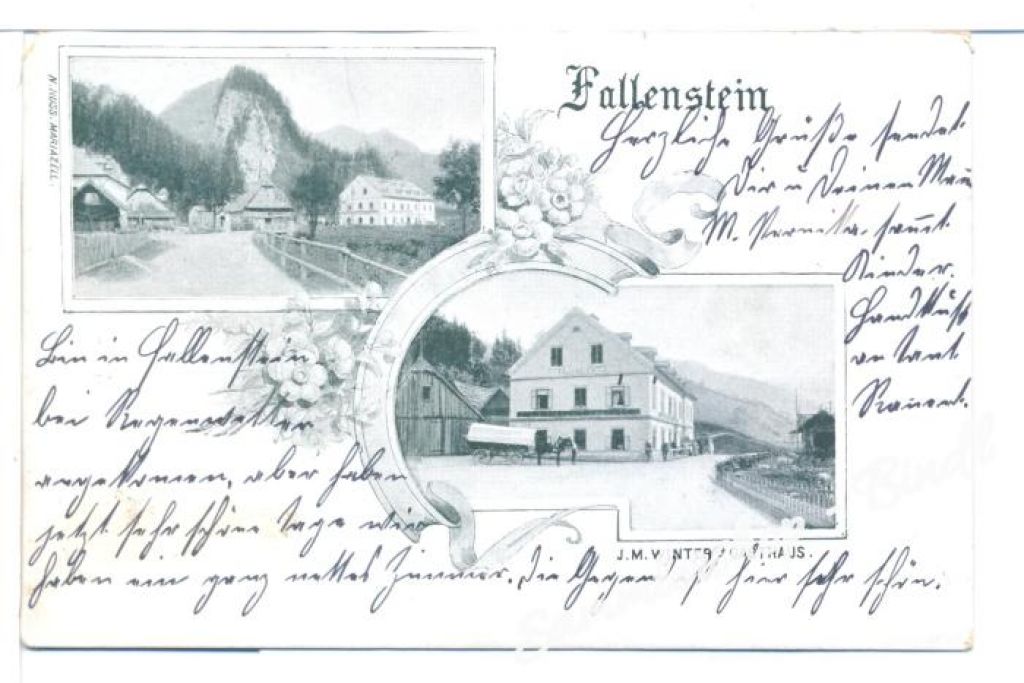 N. NUSS, MARIAZELL.
Fallenstein
Herzliche Grüße sendet
Dir u Deinen Mann
M. samt
Kinder.
Handkuß
an Tant
Bin in Fallenstein
bei Regenwetter
angekomen, aber haben
jetzt sehr schöne Tage wir
haben ein ganz nettes Zimmer. Die Gegend ist hier sehr schön.
J.M. WINTER'S GASTHAUS.